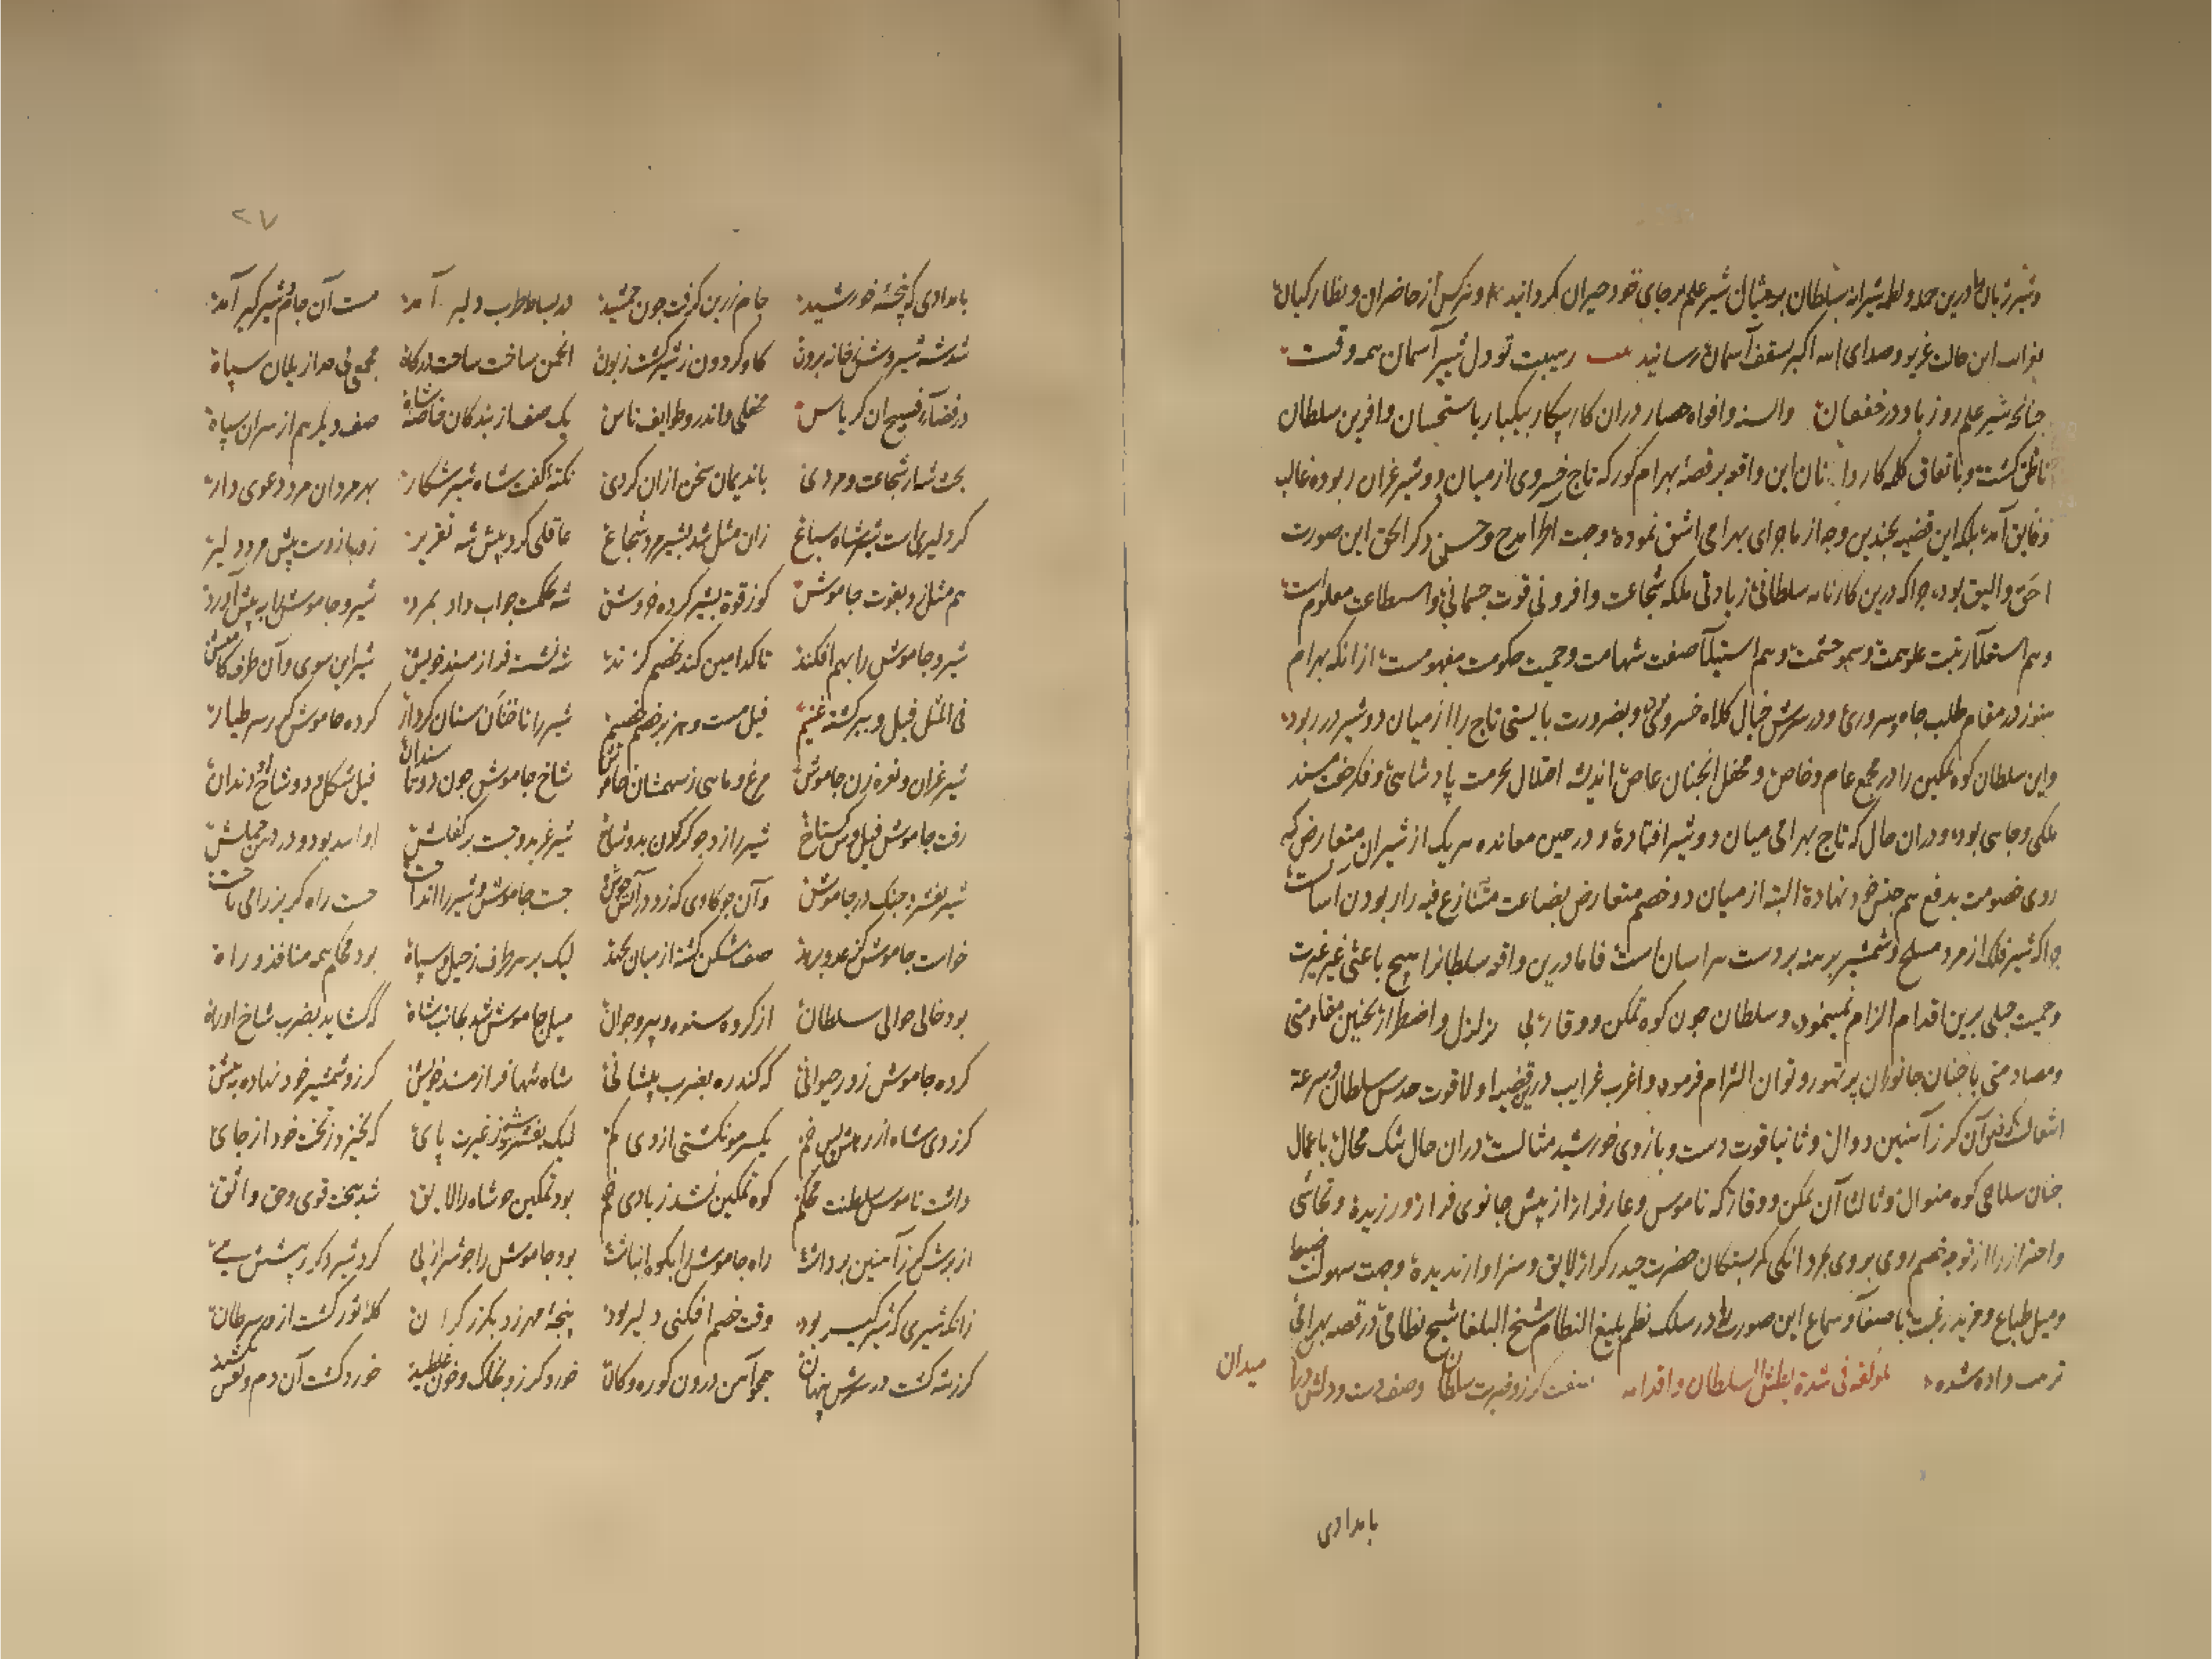 و شیر ژیان درین حمله شیرانه سلطان بر مثال شیر علم بر جای خود حیران کردانید و هر کس از حاضران و نظارکیان
این حالت غریو و صدای الله اکبر بسقف آسمان رسانید هیبت تو دل شیر آسمان همه وقت
چنانکه شیر علم روز باد در خفقان والسنه و افواه حضار دران کار پیکار بیکبار باستحسان و آفرین سلطان
ناطق کشت و باتفاق کلمه این واقعه بر قصه بهرام کور که تاج خسروی از میان دو شیر غران ربوده غالب
و فایق آمد بلکه این قضیه بچندین وجه از ماجرای بهرامی اشق نموده وجهت مدح و حسن ذکر الحق این صورت
احق و الیق بود چراکه درین کارنامه سلطانی زیادتی ملکه شجاعت و افزونی قوت جسمانی و استطاعت معلوم است
و هم استعلاء رتبت علو همت و سمو حشمت و هم استیلاء صفت شهامت و حمیت حکومت مفهومست از آنکه بهرام
هنوز در مقام طلب جاه و سروری و در سرش خیال کلاه خسروی بود و بضرورت بایستی تاج را از میان دو شیر در ربود
و این سلطان کوه تمکین را در مجمع عام و خاص و محفل اندیشه اختلال حرمت پادشاهی و فکر مسند
ملکی و جاهی بود و دران حال که تاج بهرامی میان دو شیر افتاده و در حین معانده هر یک از شیران متعارض که
روی خصومت بدفع هم جنس خود نهاده البته از میان دو خصم متعارض بضاعت متنازع فیه را ربودن آسانست
چراکه شیر فلک از مرد مسلح و شمشیر برهنه بر دست هراسان است فاما درین واقعه سلطانرا هیچ باعثی غیر غیرت
و حمیت جبلی برین اقدام الزام نمینمود و سلطان چون کوه تمکن و وقار بی تزلزل و اضطرار بچنین مقاومتی
و مصادمتی با چنان جانوران پر تهور و توان التزام فرمود و اغرب غرایب درین قضیه اولا قوت حدس سلطان و سرعة
آن کرز آهنین دوال و ثانیا قوت دست و بازوی خورشید مثالست دران حال تنک مجال باعمال
چنان سلاحی کوه منوال و ثالث آن تمکن و وقار که ناموس و عار فرار از پیش جانوری فرا نورزیده و تحاشی
و احتراز را از توجه خصم روی بروی بجز دانکی کمر بستکان حضرت حیدر کرار لایق و سزاوار ندیده وجهت سهولت ضبط
و میل طباع و مزید رغبت باصغا و سماع این صورت در سلک نظم بلیغ النظام شیخ البلغا شیخ نظامی در قصه بهرامی
ترتیب داده شده لمؤلفه فی شدة بطش السلطان و اقدامه صفت کرز و ضربت سلطان وصف دست و دلش در آن میدان
بامدادی
۲۷
بامدادی که پنجه خورشید جام زرین کرفت چون جمشید در بساط طرب دلیر آمد مست آن جام شیر کیر آمد
شد شه شیروش ز خانه برون کاو کردون ز شیر کشت زبون انجمن ساخت ساحت درکاه مجمعی از یلان سپاه
در فضاء فسیح آن کریاس محفلی و اندرو طوایف ناس یک صف از بندکان خاصه شاه صف دیکر هم از سران سپاه
بحث شه از شجاعت و مردی با ندیمان سخن ازان کردی نکته گفت شاه شیر شکار بهر مردان مرد دعوی دار
کر دلیری است شیر شاه سباع زان مثل شد بشیر مرد شجاع عاقلی کرد پیش شه تقریر زور بازوست پیش مرد دلیر
هم مثل زد بقوت جاموش کو ز قوة بشیر کرده خروش شه بحکمت جواب داد بمرد شیر و جاموش را به پیش آورد
شیر و جاموش را بهم افکند تا کدامین کند بخصم کزند شه نشسته فراز مسند خویش شیر این سوی و آن طرف کامیش
فی المثل فیل و ببر کشته غنیم فیل مست و هزبر خصم خصیم شیر را ناخنان سنان کردار کرده جاموش کرز سر طیار
شیر غران و نعره زن جاموش مرغ و ماهی ز سهمشان خاموش شاخ جاموش چون دو تا سندان فیل شکل و دو شاخ او دندان
رفت جاموش فیل وش کستاخ شیر را زد چو کرکدن بدو شاخ شیر غرید و جست بر کفلش
شیر بفشرد چنک در جاموش و آن چو کاوی که زد در آتش جوش جست جاموش و شیر را انداخت جست راه کریز را می تاخت
خواست جاموش کز عدو برهد صف شکن کشته از میان بجهد لیک بر هر طرف ز خیل و سپاه بود محکم همه منافذ و راه
بود خالی حوالی سلطان از کروه ستوده پیر و جوان میل جاموش شد بجانب شاه که کشاید بضرب شاخ او راه
کرده جاموش زور حیوانی که کند ره بضرب پیشانی شاه تنها فراز مسند خویش کرز و شمشیر خود نهاده به پیش
کر زدی شاه از رهش پس خم یکسر مو نکشتی از وی کم لیک بفشرد شه ز غیرت پای که نخیزد ز تخت خود از جای
داشت ناموس سلطنت محکم کوه تمکین نشد ز بادی خم بود تمکین چو شاه را لایق شد ببخت قوی و حق واثق
از برش کرز آهنین برداشت راه جاموش را بکوه انباشت بود جاموش را چو شیر از پی کرد شیر دکر ز پیشش پی
زانکه شیری که شیر کیر بود وقت خصم افکنی دلیر بود پنجه مهر زد بکرز کران کله ثور کشت ازو سرطان
کرز شه کشت در سرش پنهان همچو آهن درون کوره و کان خورد کرز و بخاک و خون غلطید خورد کشت آن دم و نفس نکشید